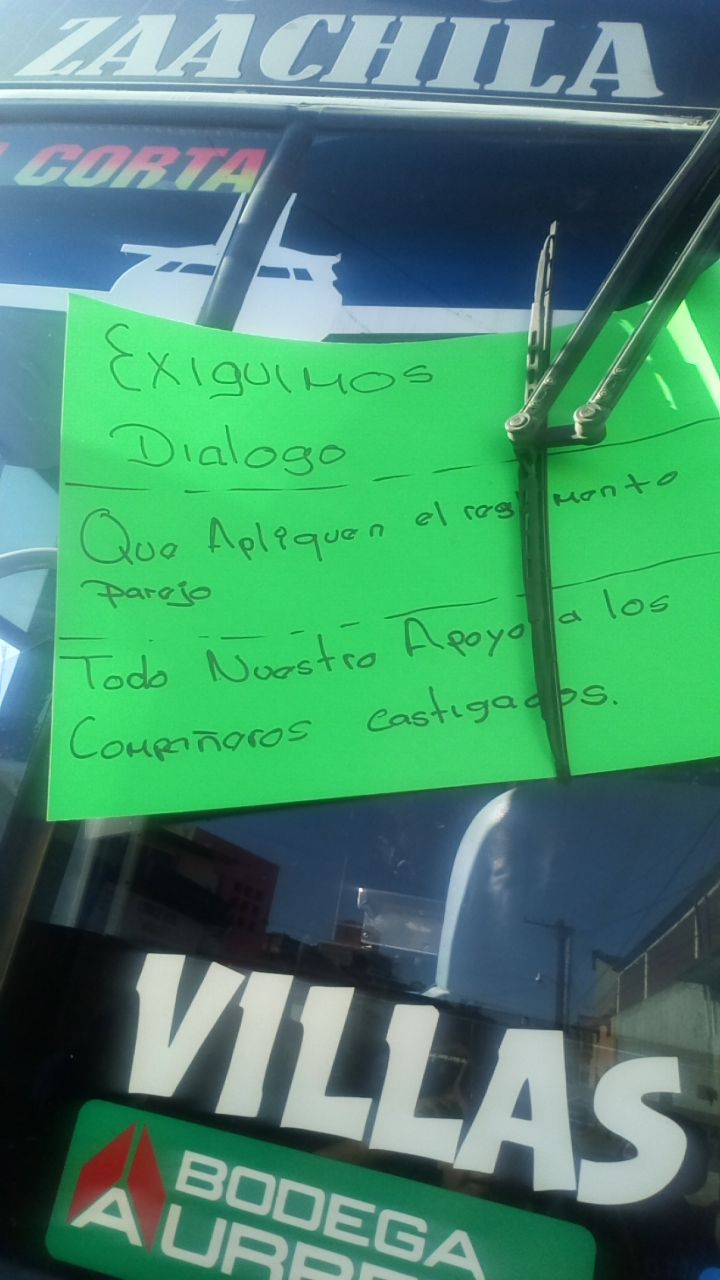 ZAACHILA
CORTA
Exiguimos
Dialogo
Que Apliquen el
parejo
Todo Nuestro Apoyo a los
Compañeros castigados.
VILLAS
BODEGA
AURRE